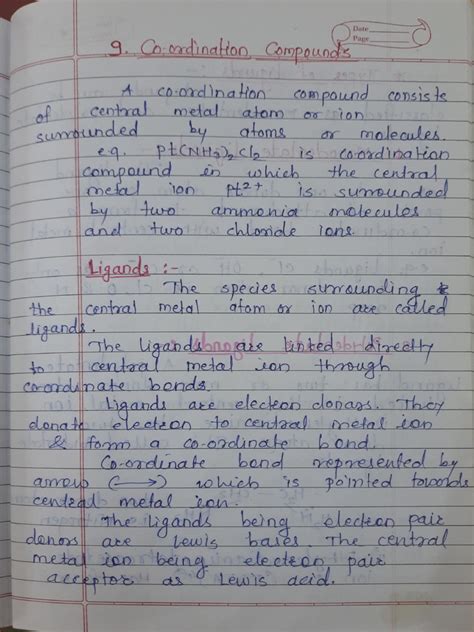 Date
Page
9. Co-ordination Compounds
A co-ordination compound consists
of central metal atom or ion
surrounded by atoms or molecules.
e.g. Pt(NH3)2Cl2 is co-ordination
compound in which the central
metal ion Pt2+ is surrounded
by two ammonia molecules
and two chloride ions.
Ligands :-
The species surrounding
the central metal atom or ion are called
ligands.
The ligands are linked directly
to central metal ion through
co-ordinate bonds.
Ligands are electron donars. They
donate electron to central metal ion
& form a co-ordinate bond.
Co-ordinate bond represented by
arrow (⟶) which is pointed towards
central metal ion.
The ligands being electron pair
donors are Lewis bases. The central
metal ion being electron pair
acceptor as Lewis acid.